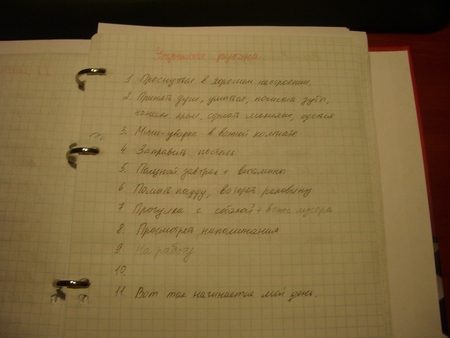 Утренняя рутина
1. Проснуться в хорошем настроении.
2. Принять душ, умыться, почистить зубы,
нанести крем, сделать макияж, одеться
3. Мини-уборка в ванной комнате
4. Заправить постель
5. Полезный завтрак + витамины
6. Помыть посуду, раковину
7. Прогулка с собакой + вынос мусора
8. Просмотреть напоминания
9. На работу
10.
11. Вот так начинается мой день.